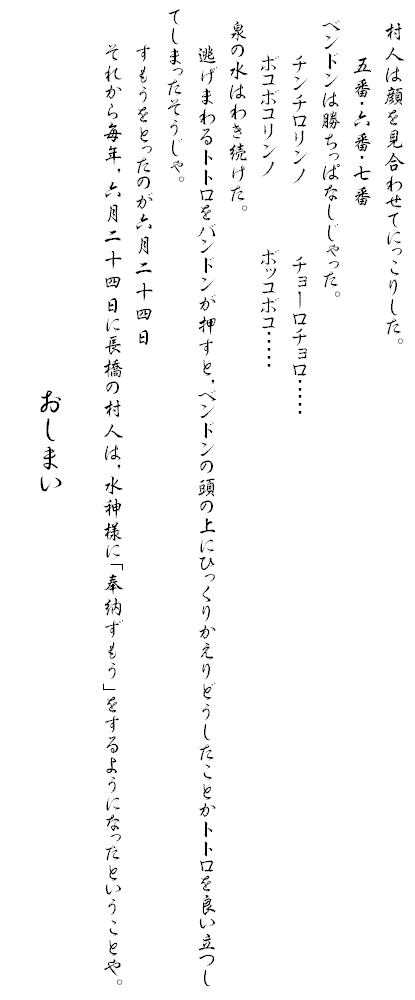 村人は顔を見合わせてにっこりした。
五番・六番・七番
ベンドンは勝ちっぱなしじゃった。
チンチロリンノ　チョーロチョロ……
ボコボコリンノ　ボッコボコ……
泉の水はわき続けた。
逃げまわるトトロをバンドンが押すと、ベンドンの頭の上にひっくりかえりどうしたことかトトロを良い立つし
てしまったそうじゃ。
すもうをとったのが六月二十四日
それから毎年、六月二十四日に長橋の村人は、水神様に「奉納ずもう」をするようになったということや。
おしまい